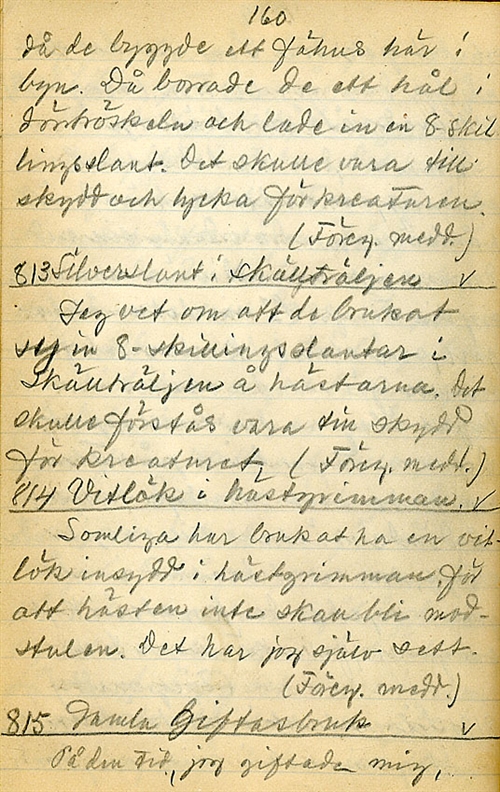 160
då de byggde ett fähus här i
byn. Då borrade de ett hål i
dörrtröskeln och lade in en 8-skil
lingsslant. Det skulle vara till
skydd och lycka för kreaturen.
(Föreg. medd.)
813 Silverslant i skälltväljen v
Jag vet om att de brukat
sy in 8-skillingsslantar i
skälltväljen å hästarna. Det
skulle förstås vara till skydd
för kreaturet. (Föreg. medd.)
814 Vitlök i hästgrimman. v
Somliga har brukat ha en vit-
lök insydd i hästgrimman, för
att hästen inte skall bli mod-
stulen. Det har jag själv sett.
(Föreg. medd.)
815 Gamla Giftasbruk v
På den tid, jag giftade mig,